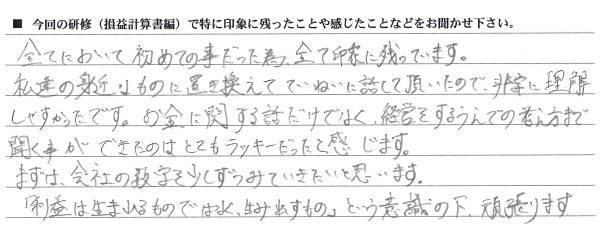 ■ 今回の研修（損益計算書編）で特に印象に残ったことや感じたことなどをお聞かせ下さい。
全てにおいて初めての事だった為、全て印象に残っています。
私達の身近なものに置き換えてていねいに話して頂いたので、非常に理解
しやすかったです。お金に関する話だけでなく、経営をするうんでの考え方まで
聞く事ができたのはとてもラッキーだったと感じます。
まずは、会社の数字を少しずつみていきたいと思います。
「利益は生まれるものではなく、生み出すもの」という意識の下、頑張ります